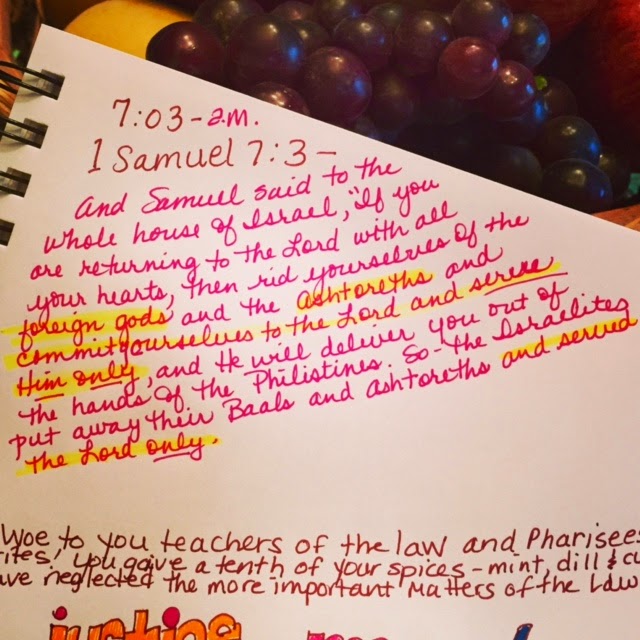 7:03 - a.m.
1 Samuel 7:3 -
And Samuel said to the
whole house of Israel, "If you
are returning to the Lord with all
your hearts, then rid yourselves of the
foreign gods and the Ashtoreths and
commit yourselves to the Lord and serve
Him only, and He will deliver you out of
the hands of the Philistines. So - the Israelites
put away their Baals and Ashtoreths and served
the Lord only.
Woe to you teachers of the law and Pharisees
rites, you gave a tenth of your spices - mint, dill &
ve neglected the more important Matters of the Law
justice